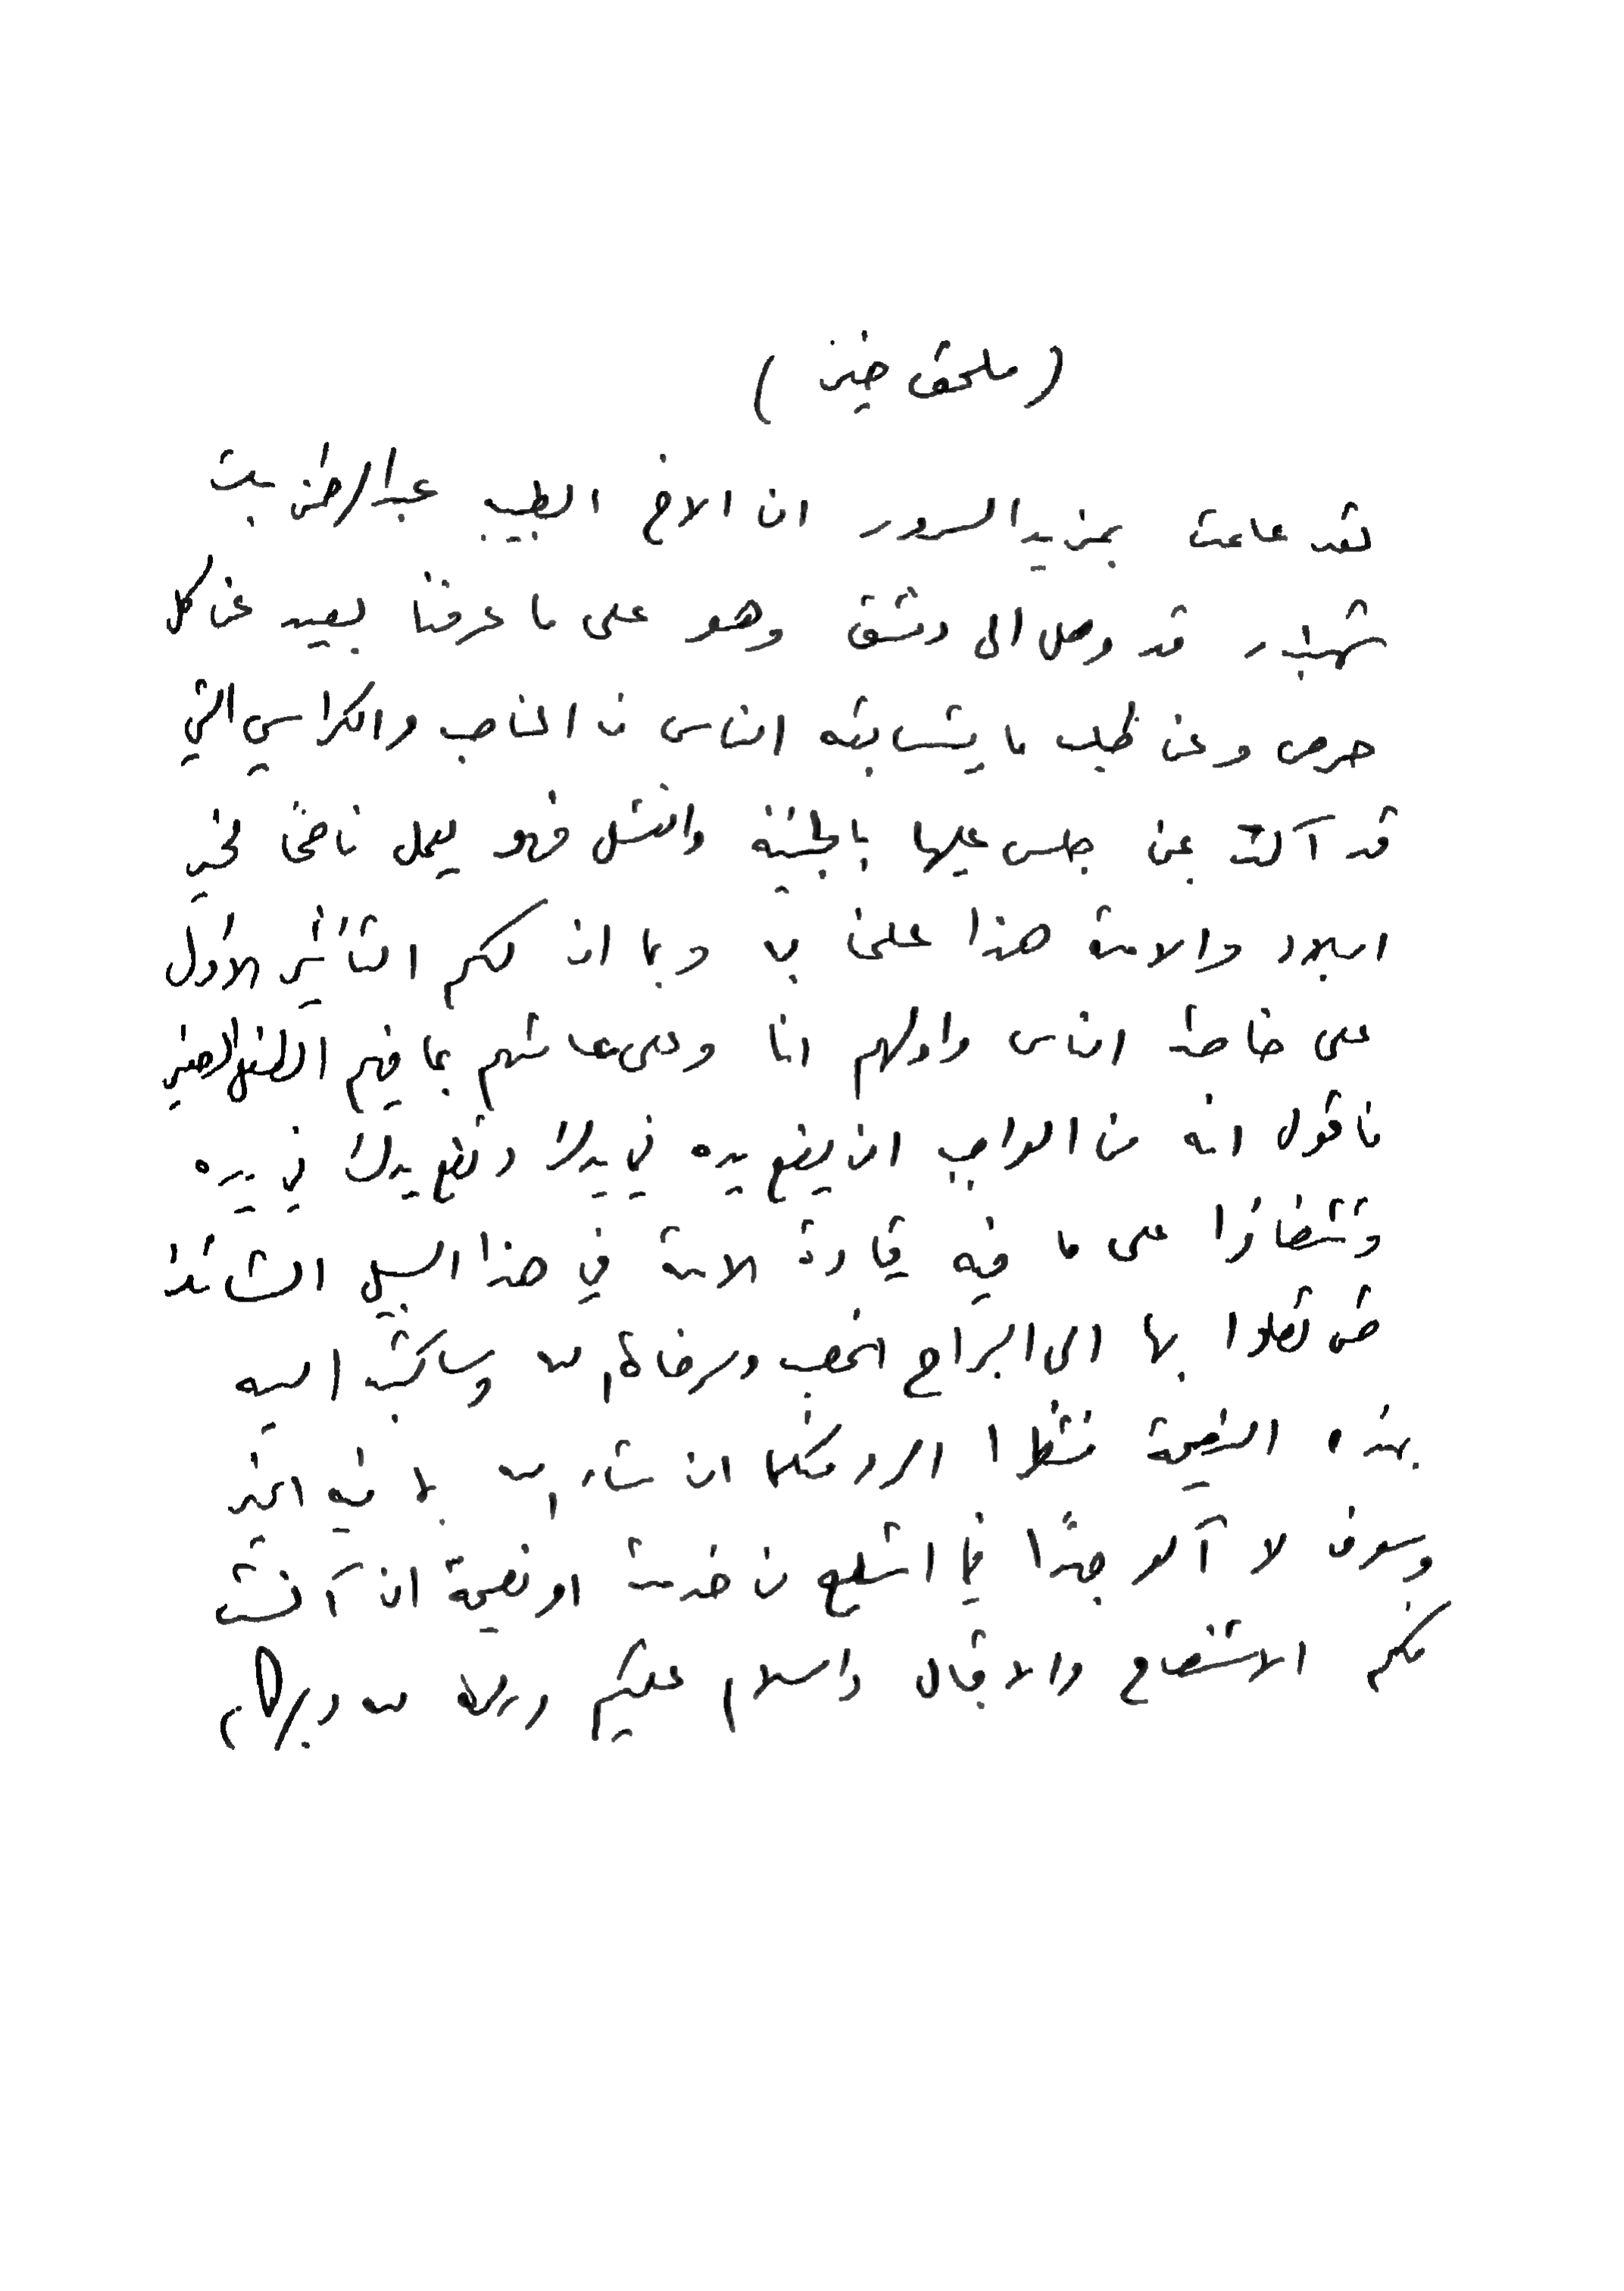 (ملحق خير)
لقد علمت بمزيد السرور ان الاخ الطبيب عبدالرحمن بك
شهبندر قد وصل الى دمشق وهو على ما عرفنا بعيد عن كل
حرص وعن طلب ما يتسابقه الناس من المناصب والكراسي التي
قد آلت بمن جلس عليها بالخيبة والفشل فهو يعمل ناصحًا لخير
البلاد والامة هذا علمي به وبما ان لكم التأثير الاول
على خاصة الناس واولهم انا وعلى عامتهم بما فيهم الطفل الصغير
فاقول انه من الواجب ان يضع يده في يدك وتضع يدك في يده
وتتضافرا على ما فيه قيادة الامة في هذا السبيل الشائك
حتى تصلوا بها الى ابراج الخصب ومرضاة الله وساكتب اليه
بهذه النصيحة منتظرا الرد منكما ان شاء الله بما فيه الخير
وسوف لا آلو جهدًا فيما استطيع من خدمة او نصيحة ان آنست
منكم الاستنصاح والاقبال والسلام عليكم ورحمة الله وبركاته